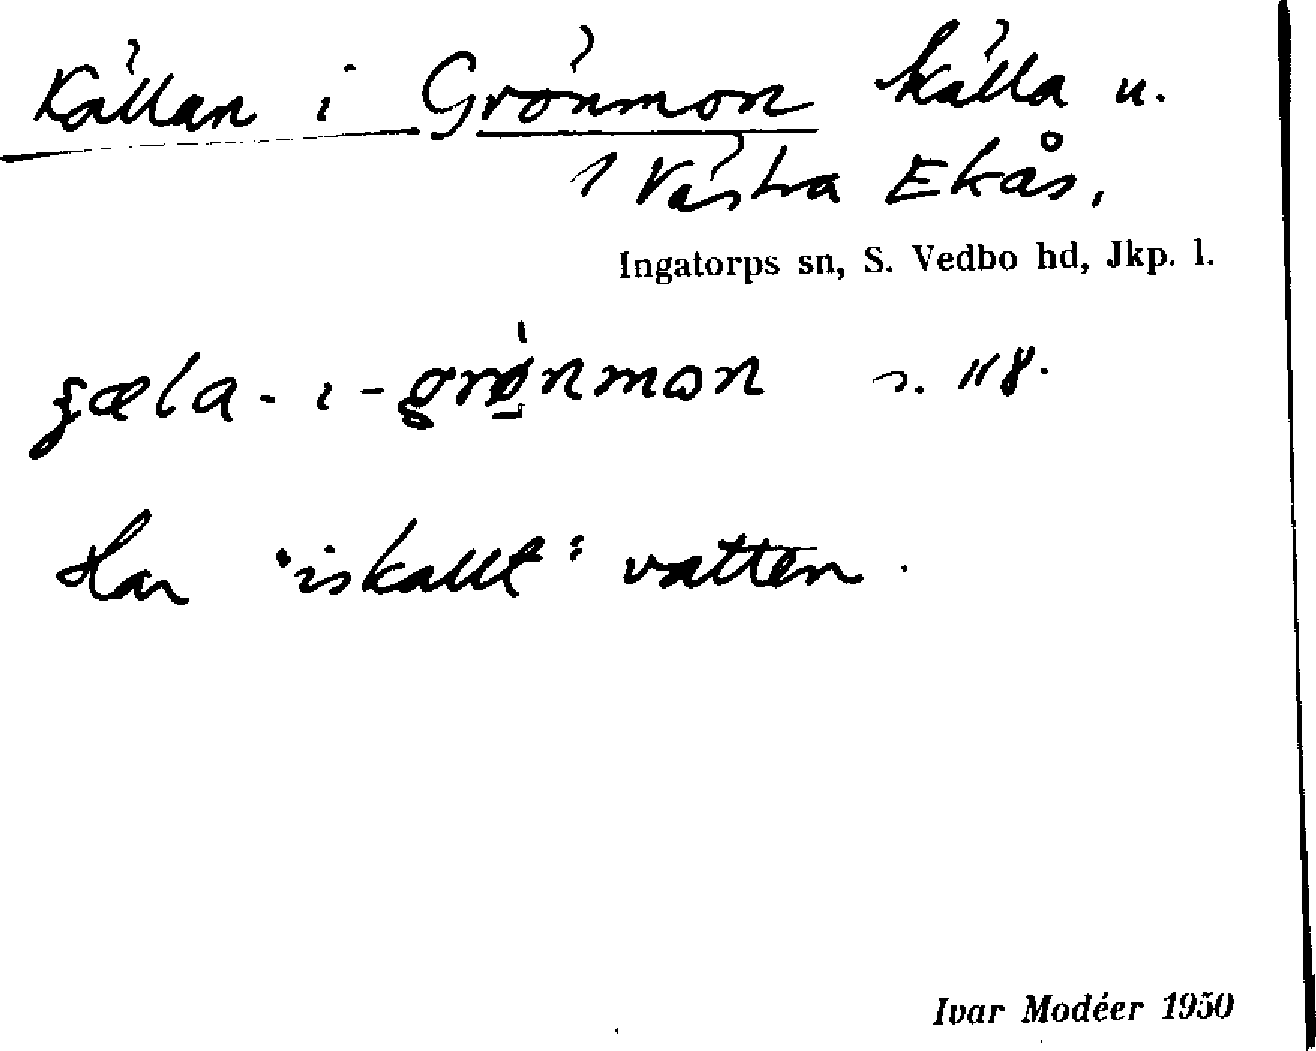 Källan i Grönmon källa u.
1 Västra Ekås.
Ingatorps sn, S. Vedbo hd, Jkp. l.
s. 118.
Har "iskallt" vatten.
Ivar Modéer 1950